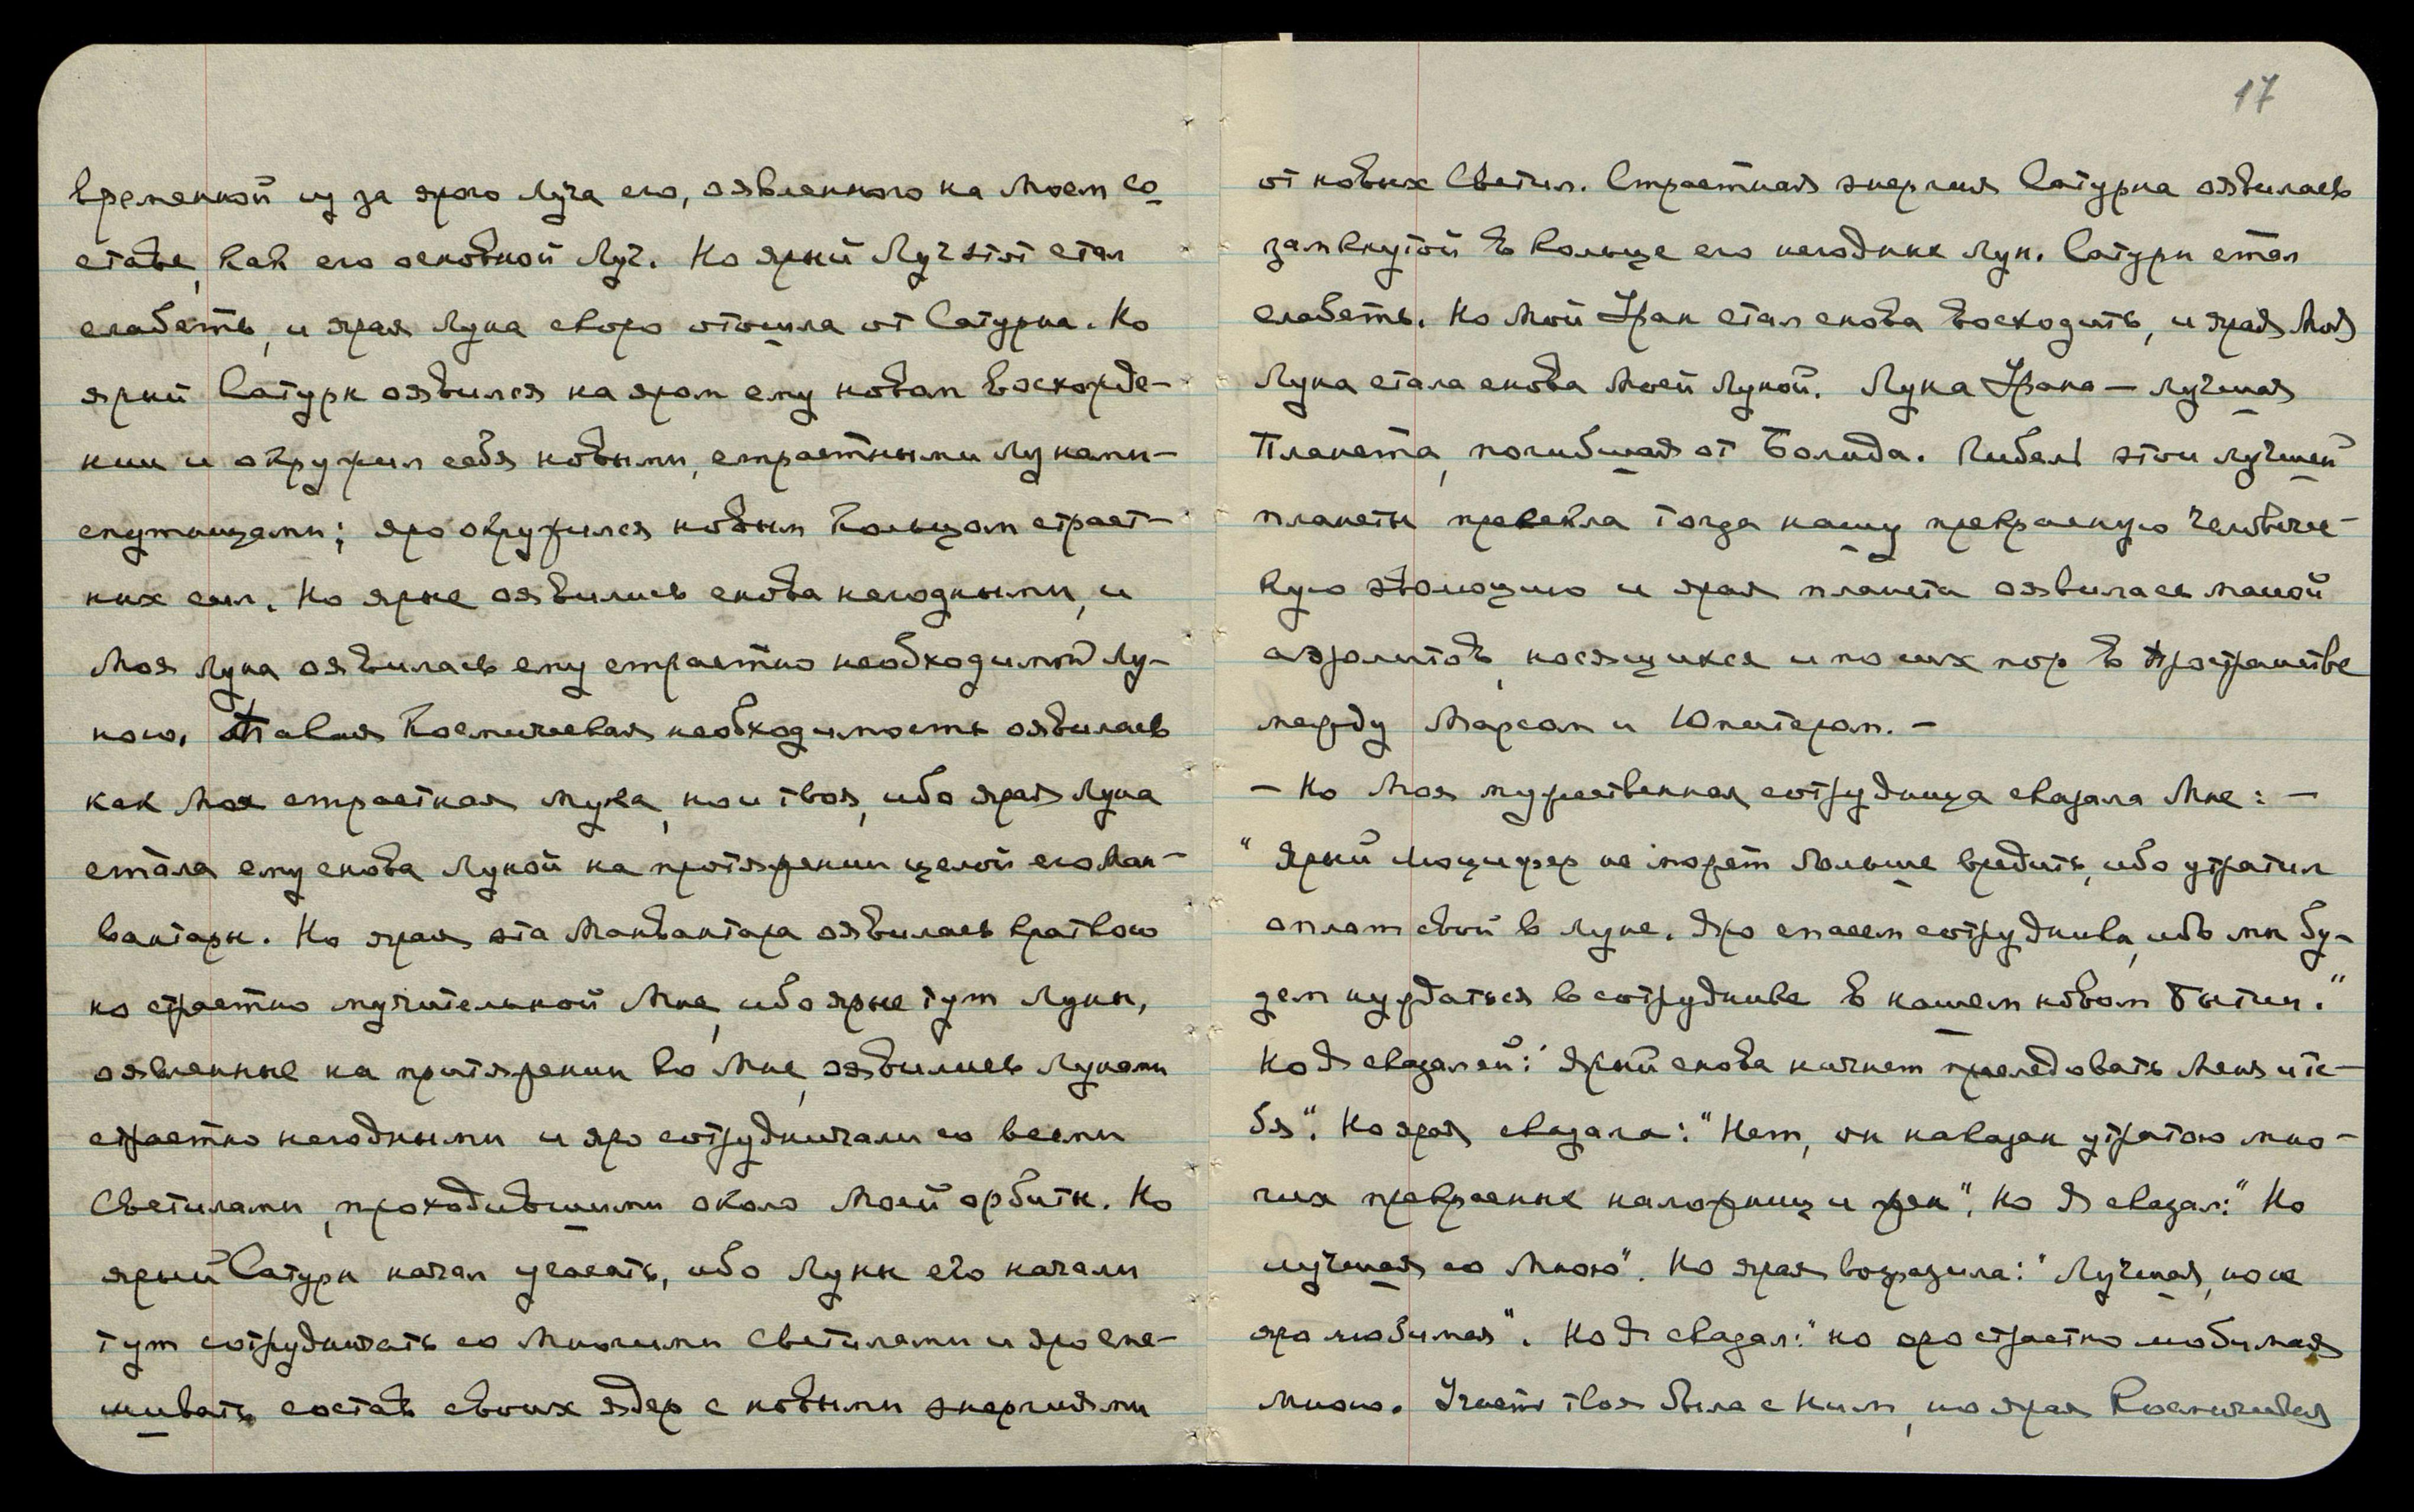 временной из за ярого Луча его, оявленного на Моем со
ставе, как его основной Луч. Но ярый Луч этот стал
слабеть, и ярая Луна скоро отошла от Сатурна. Но
ярый Сатурн оявился на яром ему новом восхожде-
нии и окружил себя новыми, страстными Лунами-
спутницами; яро окружился новым Кольцом страст-
ных сил. Но ярые оявились снова негодными, и
Моя Луна оявилась ему страстно необходимой Лу-
ною. Такая Космическая необходимость оявилась
как Моя страстная мука, но и твоя, ибо ярая Луна
стала ему снова Луной на протяжении целой его Ман-
вантары. Но ярая эта Манвантара оявилась краткою
но страстно мучительной Мне, ибо ярые тут Луны,
оявленные на притяжении ко Мне, оявились Лунами
страстно негодными и яро сотрудничали со всеми
Светилами, проходившими около Моей орбиты. Но
ярый Сатурн начал угасать, ибо Луны его начали
тут сотрудничать со Многими Светилами и яро сме-
шивать состав своих ядер с новыми энергиями
17
от новых Светил. Страстная энергия Сатурна оявилась
замкнутой в кольце его негодных Лун. Сатурн стал
слабеть. Но Мой Уран стал снова восходить, и ярая Моя
Луна стала снова Моей Луной. Луна Урана — лучшая
Планета, погибшая от Болида. Гибель этой лучшей
планеты пресекла тогда нашу прекрасную человечес-
кую эволюцию и ярая планета оявилась массой
аэролитов, носящихся и по сих пор в пространстве
между Марсом и Юпитером. —
— Но Моя мужественная сотрудница сказала Мне: —
"Ярый Люцифер не может больше вредить, ибо утратил
оплот свой в Луне. Яро спасем сотрудника, ибо мы бу-
дем нуждаться в сотруднике в нашем новом Бытии."
Но Я сказал ей: "Ярый снова начнет преследовать Меня и те-
бя". Но ярая сказала: "Нет, он наказан утратою мно-
гих прекрасных наложниц и жен". Но Я сказал: "Но
лучшая со Мною". Но ярая возразила: "Лучшая, но не
яро любимая". Но Я сказал: "но яро страстно любимая
Мною. Участь твоя была с Ним, но ярая Космическая